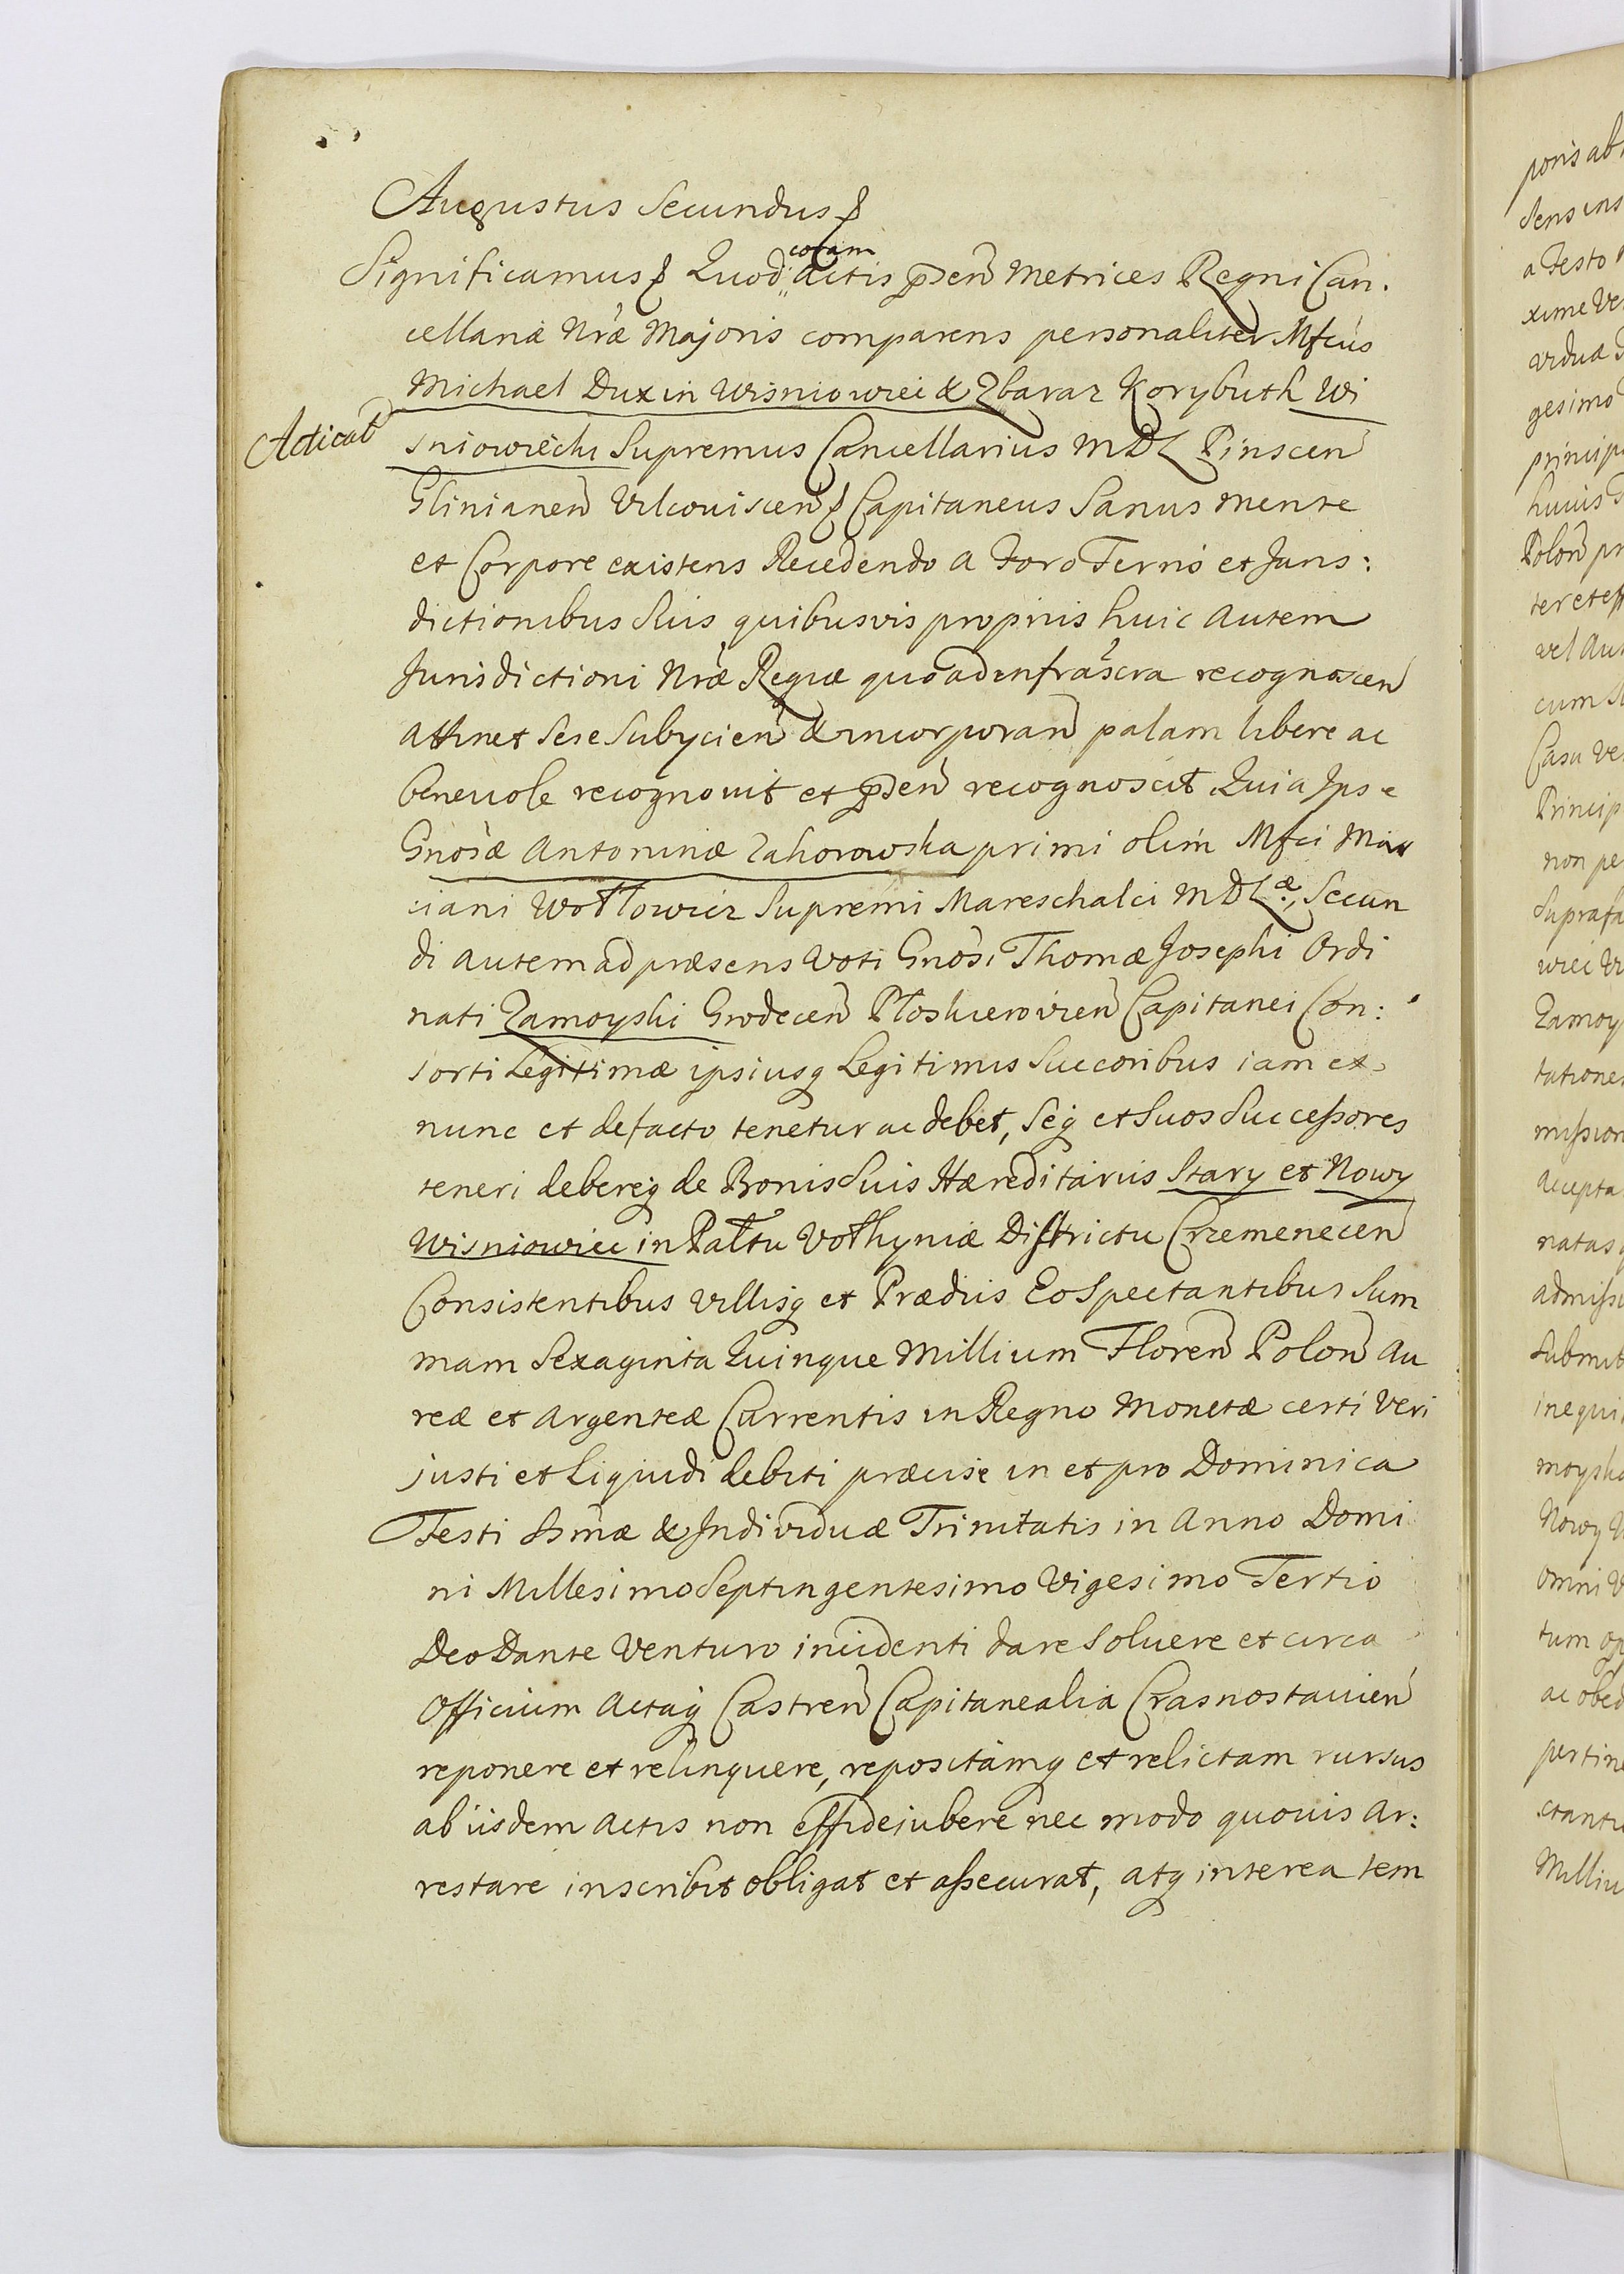 Augustus Secundus &
Significamus & Quod coram actis pñsen Metrices Regni Can.
cellariæ Nræ Majoris comparens personaliter Mfcus
Michael Dux in Wisniowiec & Zbaraz Korybuth Wi
Acticat
sniowiecki Supremus Cancellarius MDL Pinscen
Glinianen Vilcoviscen & Capitaneus Sanus mente
et Corpore existens Recedendo a Foro Terris et Juris:
dictionibus Suis quibusvis propriis huic autem
Jurisdictioni Nræ Regiæ quo ad infrascra recognoscen
attinet sese Subycien & incorporan palam libere ac
benevole recognovit et pñsen recognoscit Quia Ipse
Gnosæ Antoninæ Zahorowska primi olim Mfci Mar
ciani Wołłowicz Supremi Mareschalci MDLæ, Secun
di autem ad præsens Voti Gnosi Thomæ Josephi Ordi
nati Zamoyski Grodecen Płoskierovien Capitanei Con:
sorti Legitimæ ipsiusq Legitimis Succoribus iam ex
nunc et defacto tenetur ac debet, Seq et Suos Successores
teneri debereq de Bonis Suis Hæreditariis Stary et Nowy
Wisniowiec in Pałtu Vołhyniæ Districtu Crzemenecen
Consistentibus Villisq et Prædiis Eo Spectantibus Sum
mam Sexaginta Quinque Millium Floren Polon Au
reæ et Argenteæ Currentis in Regno Monetæ certi Veri
justi et Liquidi debiti præcise in et pro Dominica
Festi Ssmæ & Individuæ Trinitatis in Anno Domi
ni Millesimo Septingentesimo Vigesimo Tertio
Deo Dante Venturo incidenti dare Solvere et circa
Officium Actaq Castren Capitanealia Crasnostavien
reponere et relinquere, repositamq et relictam rursus
ab iisdem Actis non effideiubere nec modo quovis Ar:
restare inscribit obligat et assecurat, atq interea tem
poris ab
a Festo
vidua
gesimo
huius
Polon
vel
cum
Casu
non pe
Suprafa
Zamoy
tatione
mission
accepta
natas
admissi
Submit
inequi
moyska
Nowy
omni
tum
ac obed
pertine
ctanti
Milliu